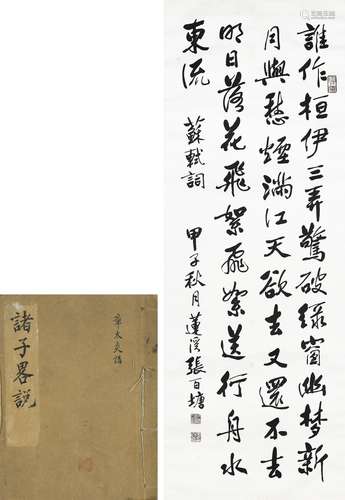 誰作桓伊三弄驚破綠窗幽夢新
月與愁煙滿江天欲去又還不去
明日落花飛絮飛絮送行舟水
東流
蘇軾詞
甲子秋月蓮溪張百塘
諸子畧說
章太炎講